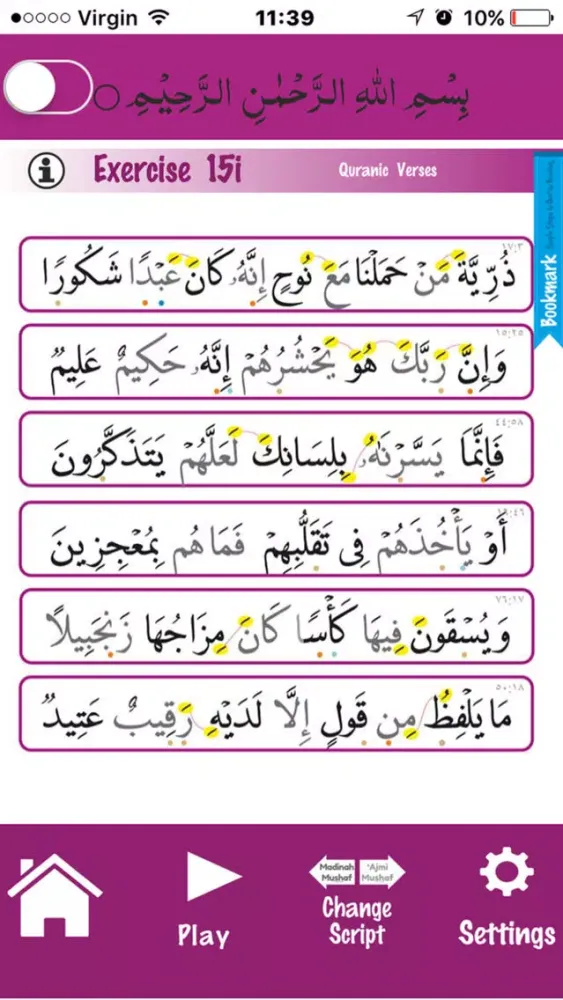 Virgin 11:39 10%
بِسْمِ اللهِ الرَّحْمٰنِ الرَّحِيْمِ
Exercise 15i Quranic Verses
Bookmark
١٧:٣
ذُرِّيَّةَ مَنْ حَمَلْنَا مَعَ نُوْحٍ إِنَّهُۥ كَانَ عَبْدًا شَكُورًا
١٥:٢٥
وَإِنَّ رَبَّكَ هُوَ يَحْشُرُهُمْ إِنَّهُۥ حَكِيمٌ عَلِيمٌ
٤٤:٥٨
فَإِنَّمَا يَسَّرْنَٰهُ بِلِسَانِكَ لَعَلَّهُمْ يَتَذَكَّرُونَ
أَوْ يَأْخُذَهُمْ فِى تَقَلُّبِهِمْ فَمَا هُم بِمُعْجِزِينَ
٧٦:١٧
وَيُسْقَوْنَ فِيهَا كَأْسًا كَانَ مِزَاجُهَا زَنجَبِيلًا
٥٠:١٨
مَا يَلْفِظُ مِن قَوْلٍ إِلَّا لَدَيْهِ رَقِيبٌ عَتِيدٌ
Madinah Mushaf 'Ajmi Mushaf
Play Change Script Settings